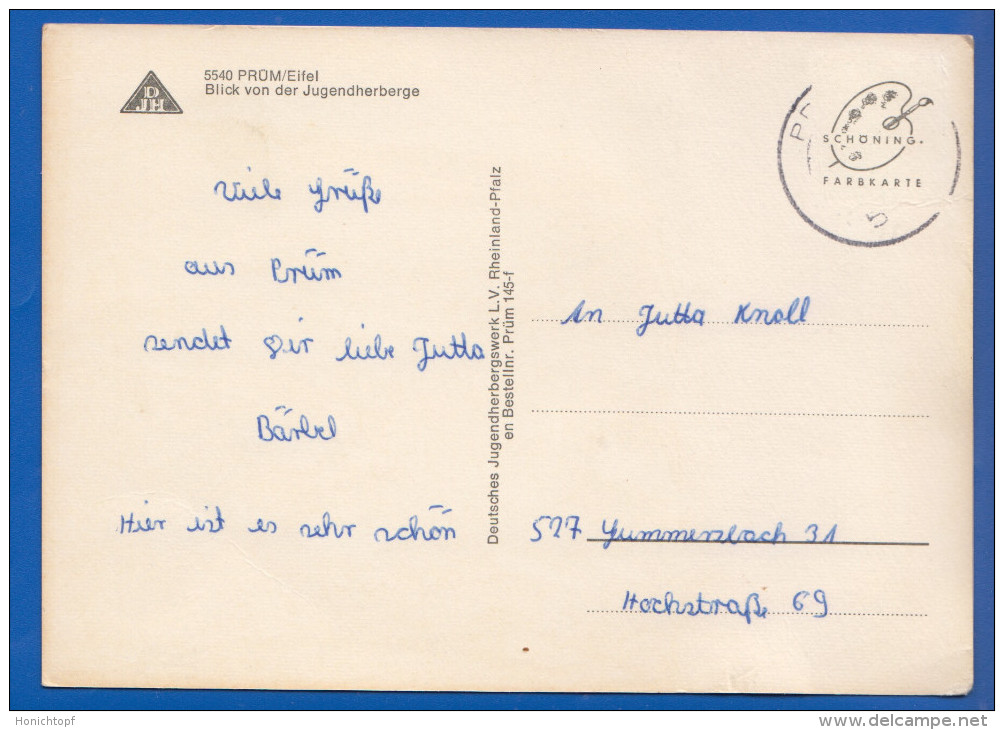 DJH
5540 PRÜM/Eifel
Blick von der Jugendherberge
Viele Grüße
aus Prüm
sendet Dir liebe Jutta
Bärbel
Hier ist es sehr schön
Deutsches Jugendherbergswerk L.V. Rheinland-Pfalz
en Bestellnr. Prüm 145-f
SCHÖNING.
FARBKARTE
An Jutta Knoll
527 Gummersbach 31
Hochstraße 69
Honichtopf
delcampe.net